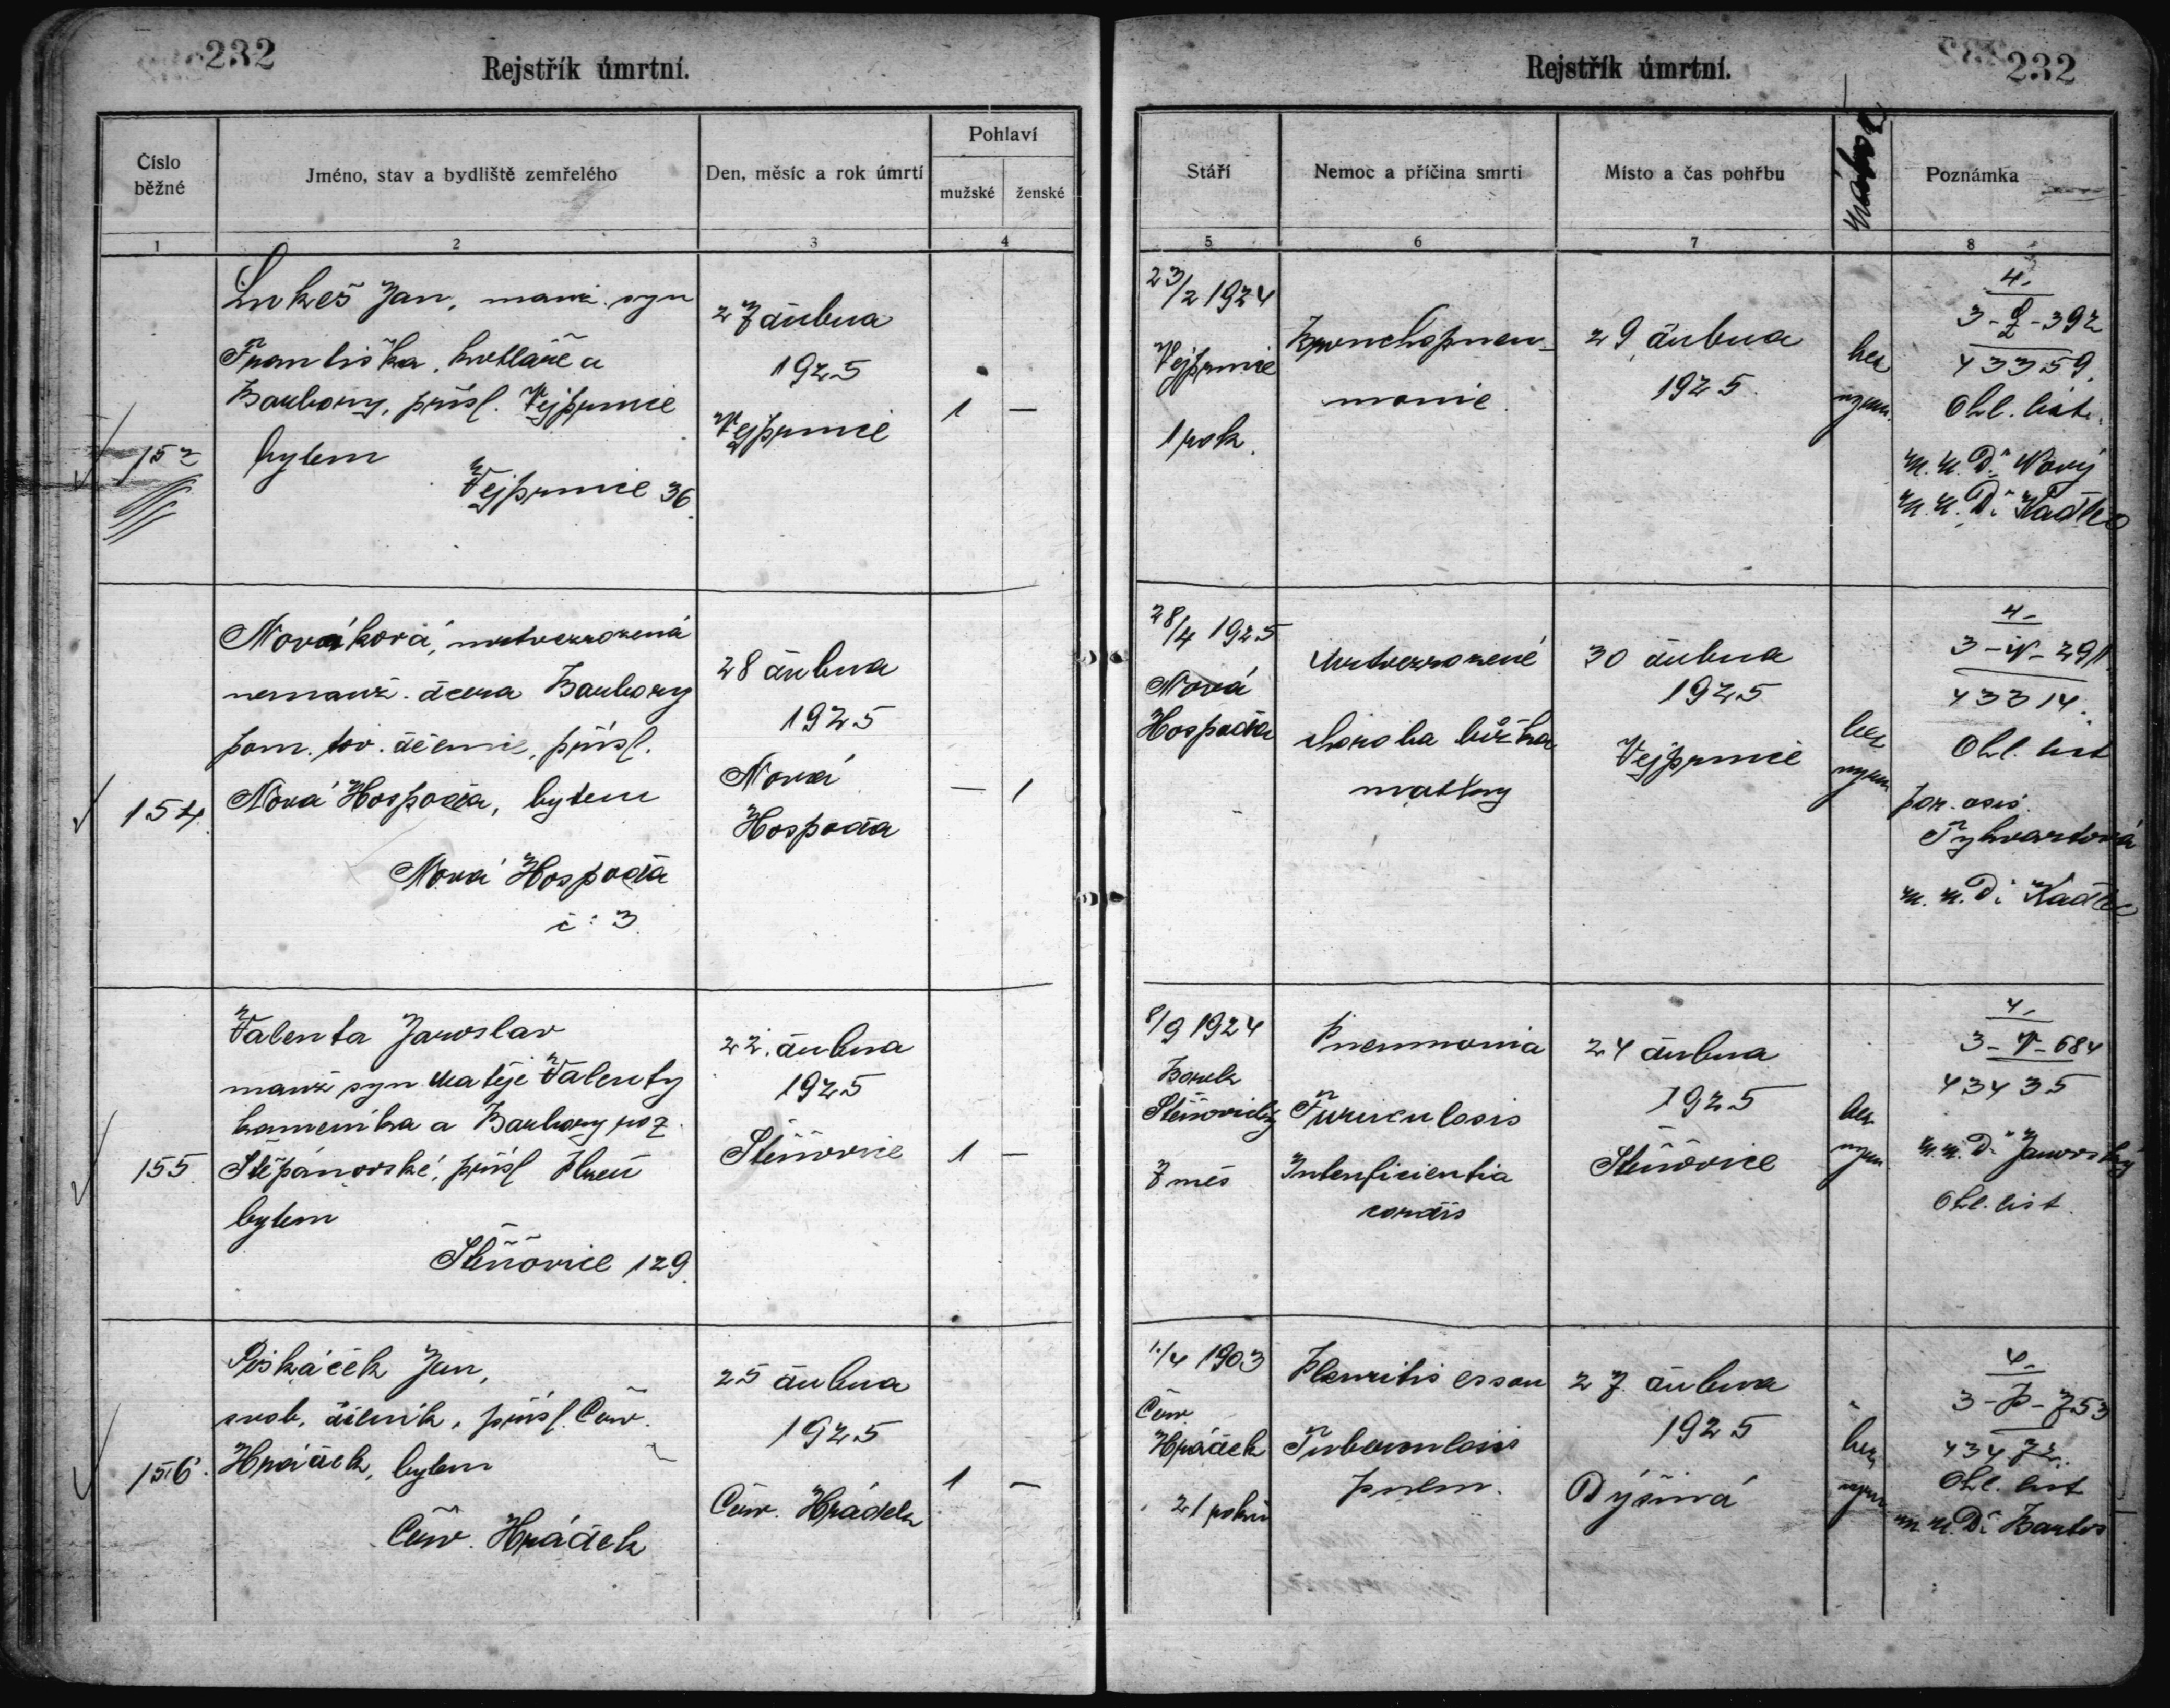 232
Rejstřík úmrtní.
Číslo běžné
Jméno, stav a bydliště zemřelého
Den, měsíc a rok úmrtí
Pohlaví
mužské
ženské
1
2
3
4
152
Lukeš Jan, manž. syn
Františka, kotláře a
Barbory, přísl. Vejprnice
bytem
Vejprnice 36.
27 dubna
1925
Vejprnice
1
—
154.
Nováková, mrtvezrozená
nemanž. dcera Barbory
pom. tov. dělnice, přísl.
Nová Hospoda, bytem
Nová Hospoda
č: 3
28 dubna
1925
Nová
Hospoda
—
1
155.
Valenta Jaroslav
manž syn Matěje Valenty
kameníka a Barbory roz.
Štěpánovské, přísl Plzeň
bytem
Štěnovice 129.
22. dubna
1925
Štěnovice
1
—
156.
Piskáček Jan,
svob. dělník, přísl. Červ.
Hrádek, bytem
Červ. Hrádek
25 dubna
1925
Červ. Hrádek
1
—
Rejstřík úmrtní.
232
Stáří
Nemoc a příčina smrti
Místo a čas pohřbu
Poznámka
5
6
7
8
23/2 1924
Vejprnice
1 rok.
Bronchopneu-
monie
29 dubna
1925
bez
4.
3-L-392
43359.
Ohl. list.
M.U.Dr. Nový
M.U.Dr. Kadlec
28/4 1925
Nová
Hospoda
Mrtvezrozené
choroba lůžka
matky
30 dubna
1925
Vejprnice
bez
4.
3-N-291
43314.
Ohl. list
por. asis.
M.U.Dr. Kadlec
8/9 1924
Borek
7 měs
Pneumonia
Furunculosis
cordis
24 dubna
1925
Štěnovice
bez
4.
3-V-684
43435
M.U.Dr. Janovský
Ohl. list.
1/4 1903
Červ.
Hrádek
21 roků
Pleuritis essou
Tuberculosis
pulm.
27 dubna
1925
Dýšiná
bez
4.
3-P-753
43472.
Ohl. list
M.U.Dr. Bartos